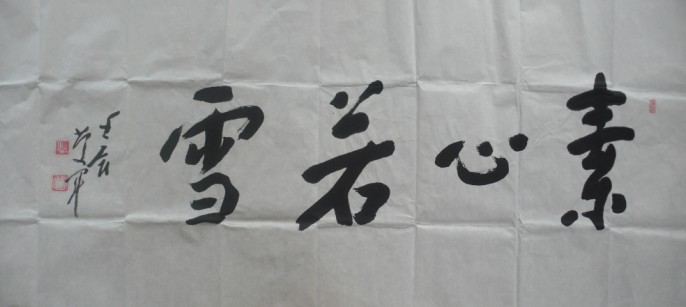 素心若雪